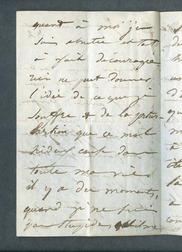 quand à moi je
suis abattue et tout
à fait découragée
rien ne peut donner
l'idée de ce que je
souffre & de la
que ce mal
hideux cause de
toute manière
il y a des moments,
quand je ne
par